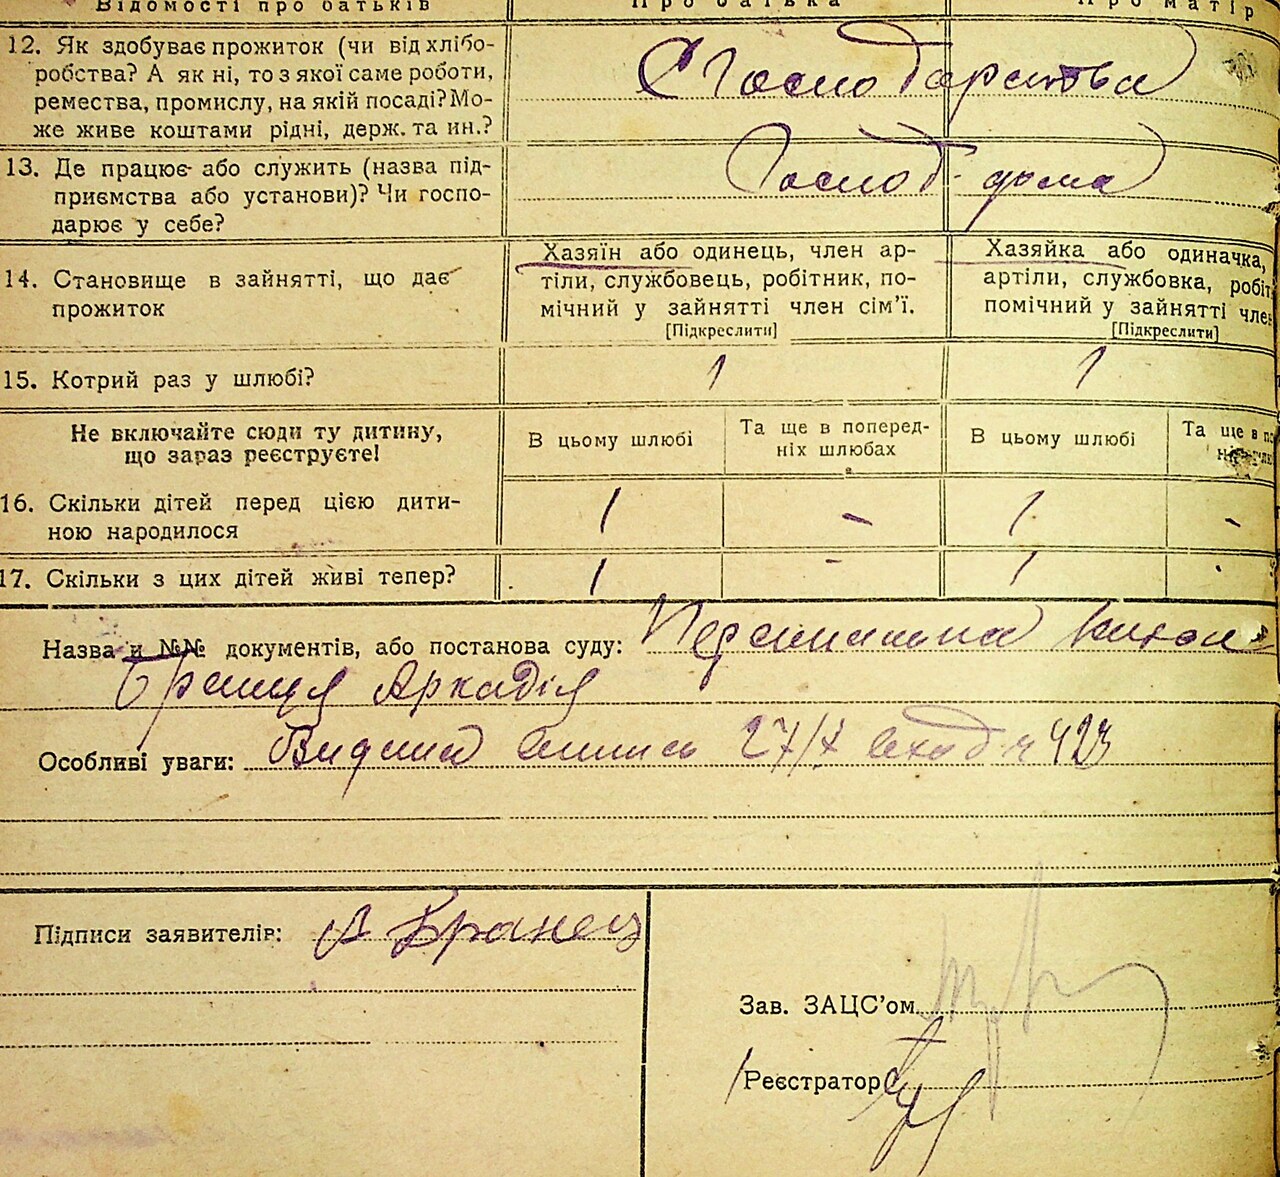 Відомості про батьків
Про батька
Про матір
12. Як здобуває прожиток (чи від хлібо-
робства? А як ні, то з якої саме роботи,
ремества, промислу, на якій посаді? Мо-
же живе коштами рідні, держ. та ин.?
С Господарства
13. Де працює або служить (назва під-
приємства або установи)? Чи госпо-
дарює у себе?
Господ. дома
14. Становище в зайнятті, що дає
прожиток
Хазяїн або одинець, член ар-
тіли, службовець, робітник, по-
мічний у зайнятті член сім’ї.
[Підкреслити]
Хазяйка або одиначка,
артіли, службовка, робіт
помічний у зайнятті член
[Підкреслити]
15. Котрий раз у шлюбі?
1
1
Не включайте сюди ту дитину,
що зараз реєструєте!
В цьому шлюбі
Та ще в поперед-
ніх шлюбах
В цьому шлюбі
Та ще в по
16. Скільки дітей перед цією дити-
ною народилося
1
-
1
-
17. Скільки з цих дітей живі тепер?
1
-
1
-
Назва и №№ документів, або постанова суду:
Аркадія
Особливі уваги: Видана 27/X 423
Підписи заявителів: А Бранец
Зав. ЗАЦС’ом
Реєстратор